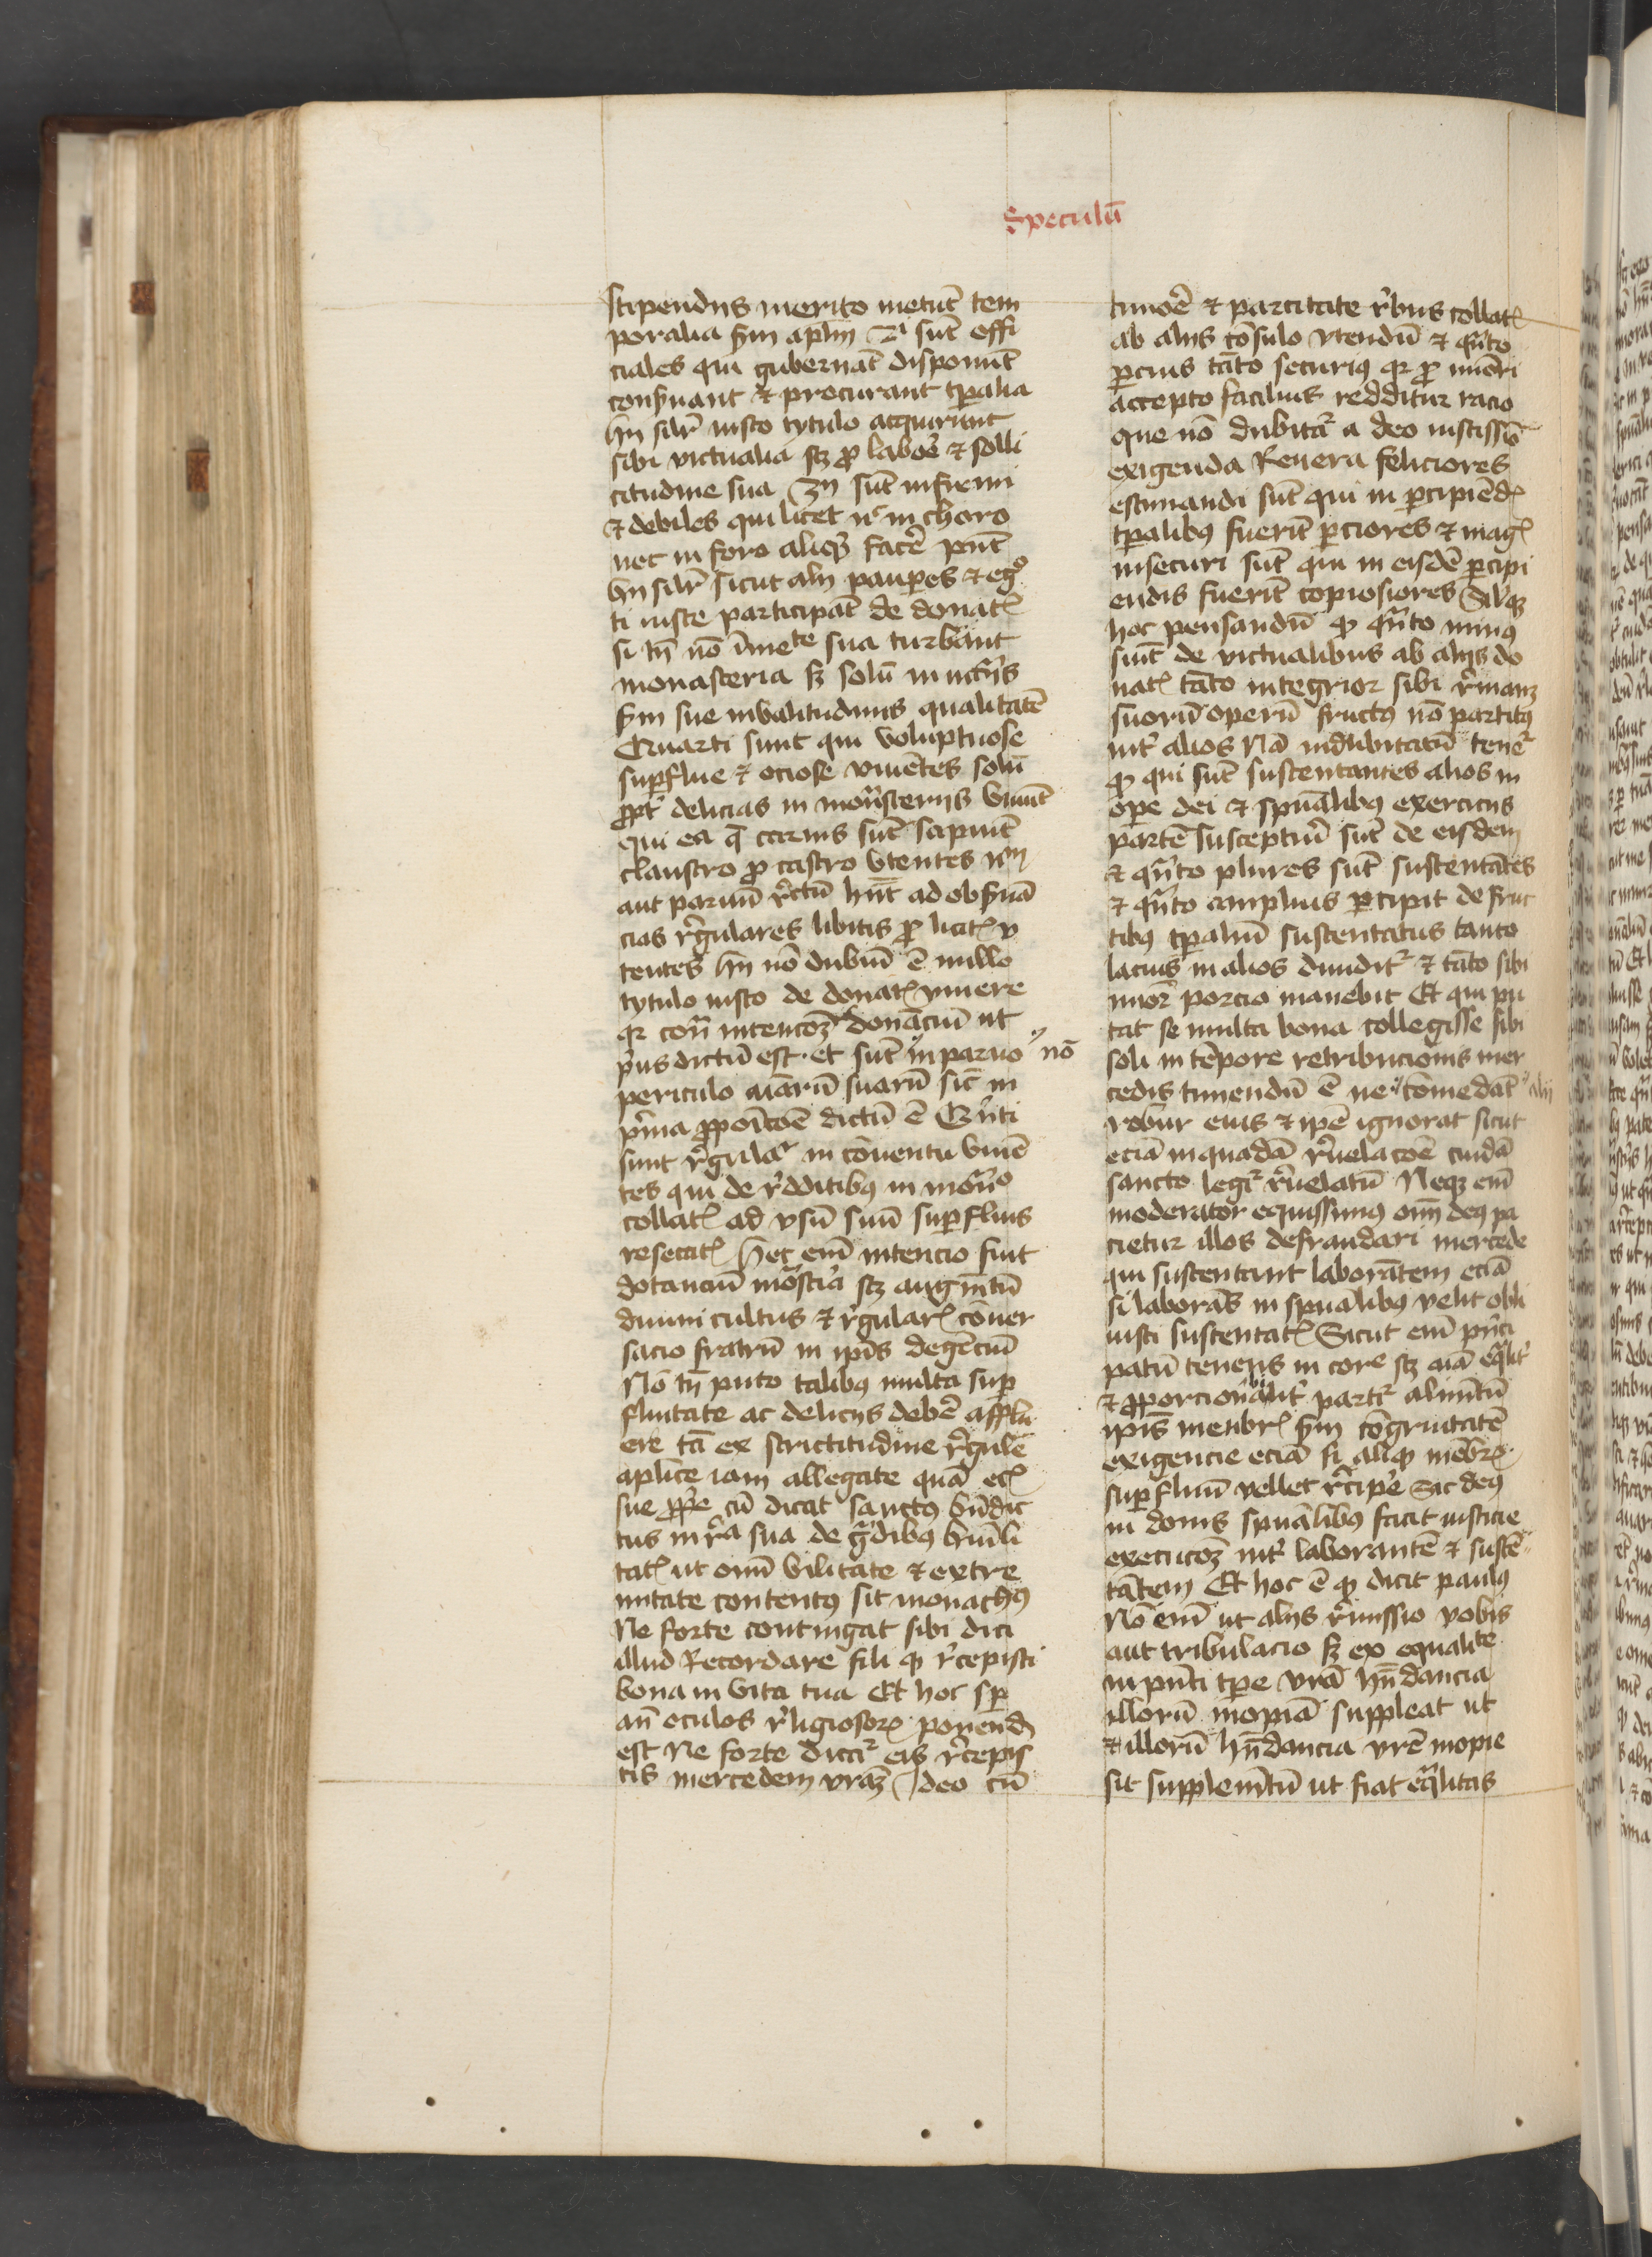 Speculū
stipendijs merito metūt tem
poralia scdm aplm 2i sūt offi
ciales qui gubernāt disponūt
conseruant et procurant tpalia
hij silr iusto tytulo acquirunt
sibi victualia scz pro labore et solli
citudine sua 3ij sūt infirmi
et debiles qui licet nc in choro
nec in foro aliqd facē pnt
hij silr sicut alij paupes et ego
ti iuste participāt de donatis
si tn nō īmete sua turbant
monasteria sz solū in inctijs
scdm sue inualitudinis qualitatē
Quarti sunt qui voluptuose
supflue et ociose viuētes solū
ppt delicias in monsterijs viuūt
qui ea q carnis sūt sapiūt
claustro pro castro vtentes non
aut paruū rctū hnt ad obseruā
cias regulares libitis pro licitis v
tentes hij nō dubiū ē nullo
tytulo iusto de donatis viuere
qr contra intencōez donanciū ut
prius dictū est. et sūt in paruo nō
periculo aīarū suarū sic in
prima pposicōe dictū ē Quīti
sunt regulares in cōuentu viuē
tes qui de redditibus in monro
collatis ad vsū suū supfluis
resecatis Hec em intencio fuit
dotanciū mostia scz augmtū
diuini cultus et regularis cōuer
sacio fratrū in ipis degēciū
Nō tn puto talibus multa sup
fluitate ac delicijs debē afflu
ere tā ex strictitudine regule
aplice iam allegate quā eciā
sue ppe cū dicat sanctus bndic
tus in rla sua de gradibus humili
tatis ut omī vilitate et extre
mitate contentus sit monachus
Ne forte contingat sibi dici
illud Recordare fili qd recepisti
bona in vita tua Et hoc sp
an oculos religiosorum ponend
est Ne forte dicatur eis recepis
tis mercedem vraz Ideo cū
timore et parcitate rebus collatis
ab alijs cōsulo vtendū et quāto
pcius tāto securius qr pro miori
accepto facilius redditur racio
que nō dubitatur a deo iustissio
exigenda Reuera feliciores
estimandi sūt qui in pcipiēdis
tpalibus fuerīt pciores et magis
insecuri sūt qui in eisdē pcipi
endis fuerīt copiosiores Silqz
hoc pensandū qd quāto minus
sūit de victualibus ab alijs do
natis tāto integrior sibi remanz
suorū operū fructus nō partitus
int alios Nā indubitatū tenetur
qd qui sūt sustentantes alios in
ope dei et spualibus exercicijs
partē susceptiui sūt de eisdem
et quāto plures sūt sustentātes
et quāto amplius pcipit de fruc
tibus tpaliū sustentatus tanto
lacius in alios diuiditur et tāto sibi
mior porcio manebit Et qui pu
tat se multa bona collegisse sibi
soli in tēpore retribucionis mer
cedis timendū ē ne cōmedāt alij
robur eius et ipe ignorat sicut
eciā in quadā reuelacōe cuidā
sancto legitur reuelatū Neqz em
moderator equissimus omī deus pa
cietur illos defraudari mercede
qui sustentant laborātem eciā
si laborās in spualibus velit obli
uisci sustentatis Sicut em pnci
patū tenens in core scz aīa equalit
et pporcionabilit partitur alimtū
ipis menbris scdm cōgruitatē
exigencie eciā si aliqd mēbrorum
supfluū vellet recipe Sic deus
in donis spualibus facit iusticie
execucōez int laborantē et sustē
tātem Et hoc ē qd dicit paulus
Nō em ut alijs remissio vobis
aut tribulacio sz ex equalite
in pnti tpe vra hūdancia
illorū inopiā suppleat ut
et illorū hūdancia vre inopie
sit supplemtū ut fiat equalitas